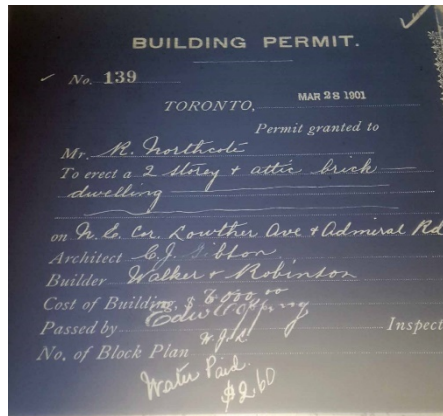 BUILDING PERMIT.
No. 139
TORONTO, MAR 28 1901
Permit granted to
Mr. R. Northcote
To erect a 2 storey + attic brick
dwelling
on N.E. Cor. Lowther Ave + Admiral Rd
Architect C.J. Gibson
Builder Walker + Robinson
Cost of Building, $ 6000.00
Passed by Inspect
No. of Block Plan
Water Paid
$2.60